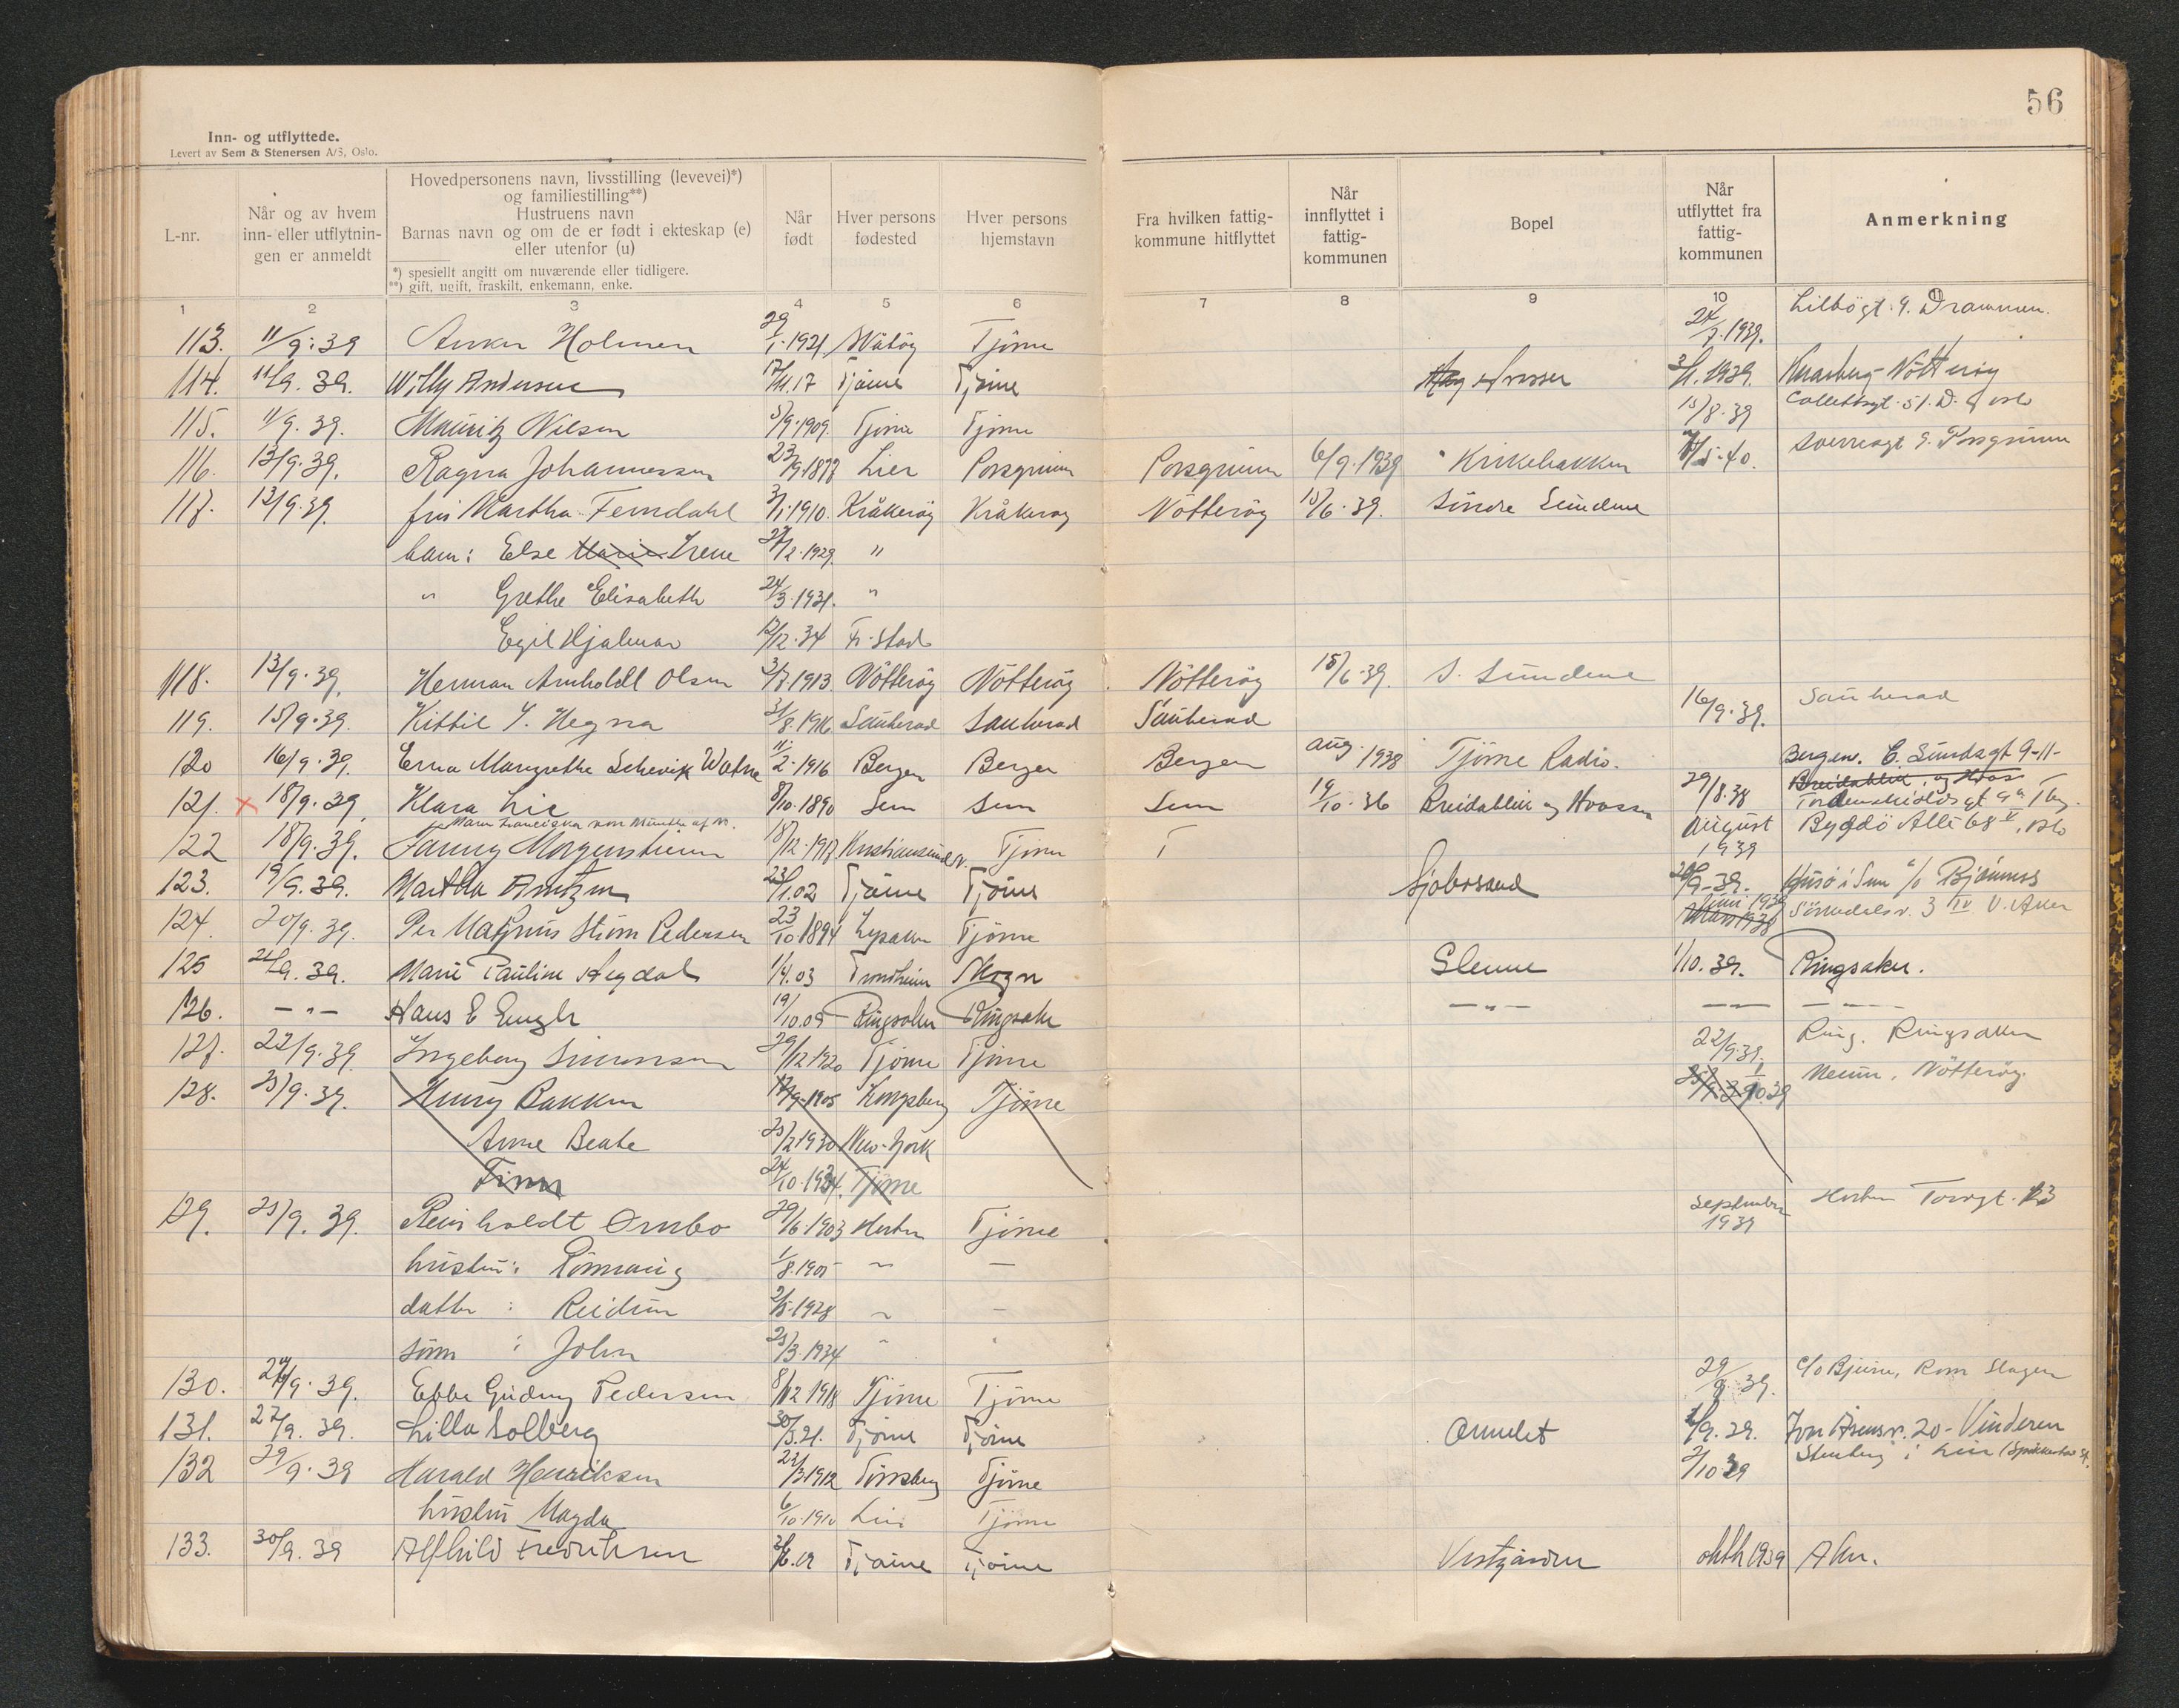 56
Inn- og utflyttede.
Levert av Sem & Stenersen A/S, Oslo.
L-nr.
Når og av hvem
inn- eller utflytnin-
gen er anmeldt
Hovedpersonens navn, livsstilling (levevei)*)
og familiestilling**)
Hustruens navn
Barnas navn og om de er født i ekteskap (e)
eller utenfor (u)
*) spesiellt angitt om nuværende eller tidligere.
**) gift, ugift, fraskilt, enkemann, enke.
Når
født
Hver persons
fødested
Hver persons
hjemstavn
Fra hvilken fattig-
kommune hitflyttet
Når
innflyttet i
fattig-
kommunen
Bopel
Når
utflyttet fra
fattig-
kommunen
Anmerkning
1 2 3 4 5 6 7 8 9 10 11
113. 11/9.39 Holmen 29/1.1921 Tjöme 24/7.1939. 9. Drammen.
114. 11/9.39. Willy Andersen 17/11.17 Tjöme Tjöme 3/1.1939. Nötteröy
115. 11/9.39. Mauritz Nilsen 5/9.1909. Tjöme Tjöme 15/8.39 Collettsgt. 51.D. Oslo
116. 13/9.39. Ragna Johannessen 23/9.1877 Lier Porsgrunn Porsgrunn 6/9.1939 Krikebakken /5.40. Sverresgt 9. Porsgrunn
117. 13/9.39. fru Martha Ferndahl 3/1.1910. Kråkeröy Kråkeröy Nötteröy 15/6.39. Söndre Sundene
barn: Else Marie Irene 27/2.1929. "
" Grethe Elisabeth 24/3.1931. "
Egil Hjalmar 12/12.34 Fr.stad
118. 13/9.39. Herman Arnholdt Olsen 3/7.1913 Nötteröy Nötteröy Nötteröy 15/6.39. S. Sundene
119. 15/9.39. Kittil Y. Hegna 31/8.1916 Sauherad Sauherad Sauherad 16/9.39. Sauherad
120 16/9.39. Erna Margrethe Watne 11/2.1916 Bergen Bergen Bergen aug. 1938 Tjöme Radio. Bergen. C. Sundsgt 9-11-
121. x 18/9.39. Klara Lie 8/10.1890 Sem Sem Sem 19/10.36 Breidablik og Hvasser 29/8.38 Breidablik og Hvas Tordenskioldsgt 9a Tbg.
122 18/9.39. Fanny Morgenstierne Maria Franciska von Munthe af M. 18/12.1917 Kristiansund N. Tjöme T August 1939 Bygdö Allé 68 V, Oslo
123. 19/9.39. Martha Arntzen 23/1.02 Tjöme Tjöme Sjobosand 20/9-39. Husö i Sem c/o Bjönness
124. 20/9.39. Per Magnus Ström Pedersen 23/10.1894 Lysaker Tjöme Juni 1938 Mars 1938 Sörkedalsv. 3 IV V. Aker
125 21/9.39. Marie Pauline Hegdal 1/4.03 Trondheim Skogn Glenne 1/10.39. Ringsaker.
126. - " - Hans E Engh 19/10.09 Ringsaker Ringsaker - " - - " - - " -
127. 22/9.39. Ingeborg Simonsen 29/12.1920 Tjöme Tjöme 22/9.39. Ring. Ringsaker
128. 25/9.39. Henny Bakken 17/9.1905 Kongsberg Tjöme 25/9.39 1/10.39 Nötteröy.
Anne Beate 25/2.1930 New-York
Finn 24/10.1934. Tjöme
129. 25/9.39. Reinholdt Ornbo 29/6.1903 Horten Tjöme September 1939 Horten Torvgt. 13
hustru: Rönnaug 1/8.1905 " -
datter: Reidun 2/5.1928 " -
sönn : John 25/3.1934 "
130. 26/9.39. Ebba Gudny Pedersen 8/12.1918 Tjöme Tjöme 29/9.39. c/o Bjune, Rom Slagen
131. 27/9.39. Lilla Solberg 30/5.21. Tjöme Tjöme Ormelet 1/9.39. Jon Åsensv. 20-Vinderen
132 29/9.39 Harald Henriksen 22/3.1912 Tönsberg Tjöme 2/10.39 Stenberg i Lier
hustru Magda 6/10.1910 Lier Tjöme
133. 30/9.39 Alfhild Fredriksen /6.19 Tjöme Tjöme Vestgården oktb 1939 Aker.